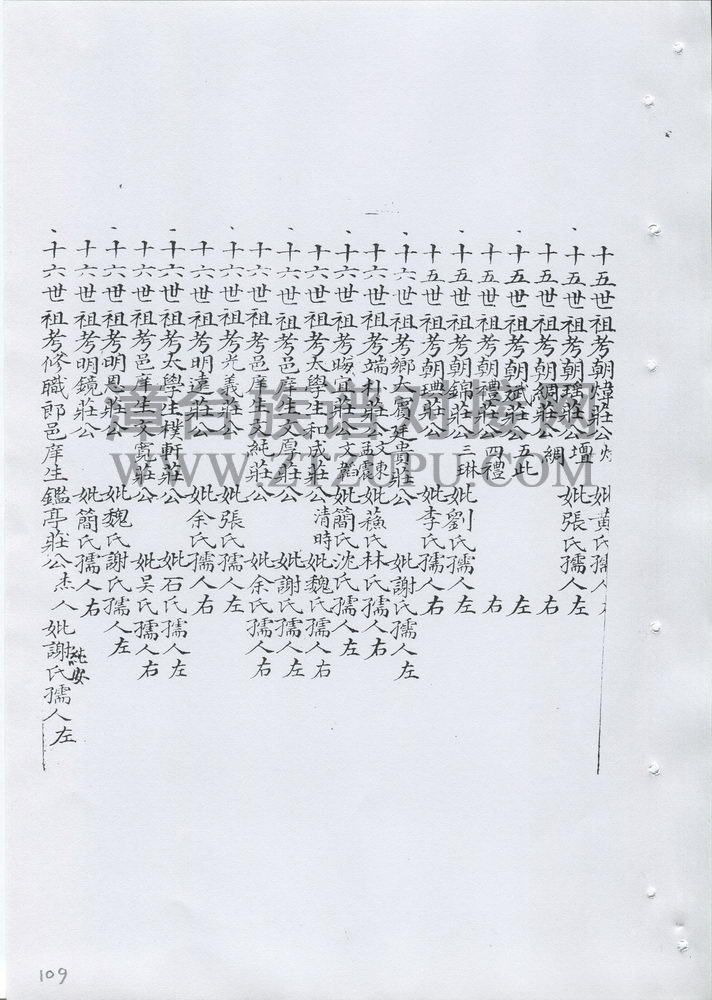 十五世祖考朝煒莊公 妣黃氏孺人
、十五世祖考朝璿莊公壇 妣張氏孺人左
十五世祖考朝綢莊公綢 右
、十五世祖考朝斌莊公五 左
十五世祖考朝禮莊公四禮 右
、十五世祖考朝錦莊公三琳 妣劉氏孺人左
十五世祖考朝 莊公 妣李氏孺人右
、十六世祖考鄉大賓廷貴莊公 妣謝氏孺人左
十六世祖考端朴莊公 妣蘓氏林氏孺人右
、十六世祖考 宜莊公文 妣簡氏沈氏孺人左
十六世祖考太學生和成莊公清時 妣魏氏孺人右
、十六世祖考邑庠生文厚莊公 妣謝氏孺人左
十六世祖考邑庠生文純莊公 妣余氏孺人右
、十六世祖考光義莊公 妣張氏孺人左
十六世祖考明達莊公 妣余氏孺人右
、十六世祖考太學生樸軒莊公 妣石氏孺人左
十六世祖考邑庠生文寬莊公 妣吴氏孺人右
、十六世祖考明恩莊公 妣魏氏謝氏孺人左
十六世祖考明鏡莊公 妣簡氏孺人右
、十六世祖考修職郎邑庠生鑑亭莊公杰人 妣謝氏純安孺人左
漳台族谱对接网
WWW.ZTZUPU.COM
109